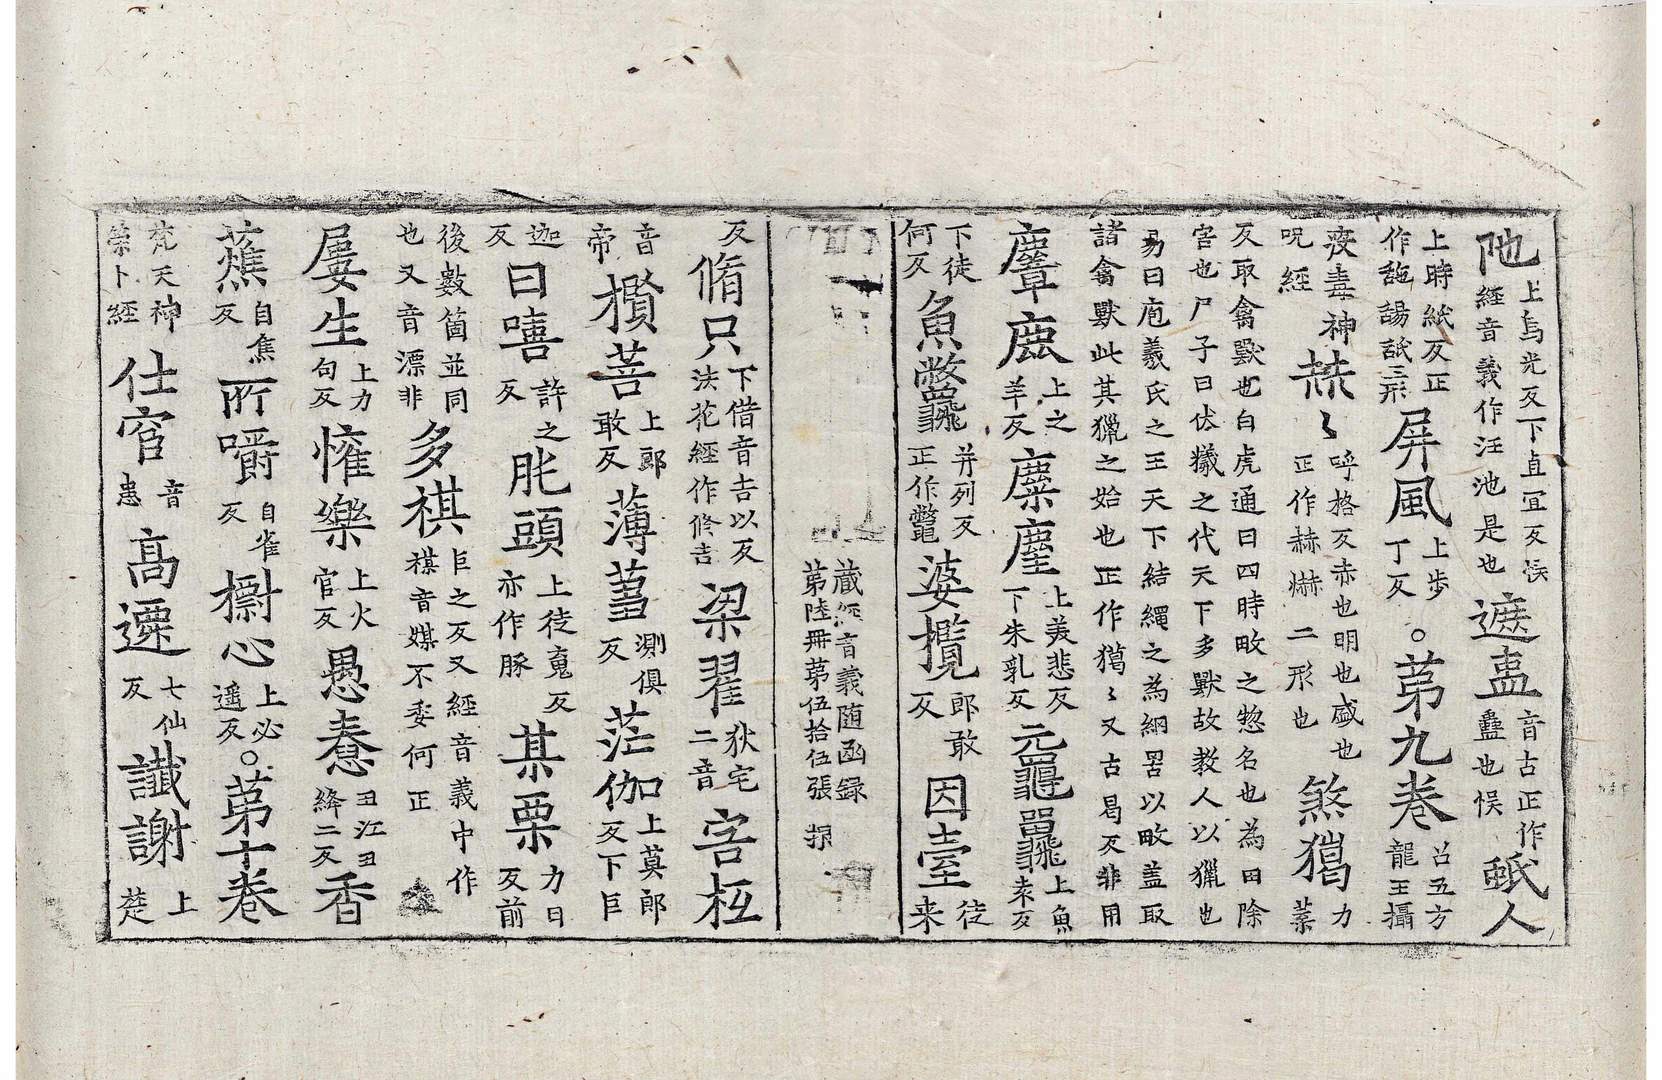 虵上烏光反下直冝反悮經音義作汪池是也遮蛊音古正作蠱也悮䑛人
上時紙反正作䑛䑛三形屏風上步丁反。苐九卷吕五方龍王攝
疫毒神呪經赫〻呼格反赤也明也盛也正作赫爀二形也煞獦力葉
反取禽獸也白虎通曰四時畋之惣名也為田除
害也尸子曰伏犠之代天下多獸故教人以獵也
易曰庖羲氏之王天下結繩之為網罟以畋盖取
諸禽獸此其獵之始也正作獦〻又古曷反非用
麞鹿上之羊反麋麈上美悲反下朱乳反元鼉上魚下徒
何反魚鼈并列反正作鼈婆攬郎敢反因臺徒来
藏經音義随函録苐陸冊苐伍拾伍張
反脩只下借音吉以反法花經作修吉梁翟狄宅二音害柢
音帝欖菩上郎敢反薄蒭測俱反茫伽上莫郎反下巨
迦反曰嘻許之反肫頭上徒䰟反亦作豚某栗力日反前
後數箇並同也又音漂非多祺巨之反又經音義中作禖音媒不委何正
屢生上力句反懽樂上火官反愚惷丑江丑絳二反香
蕉自焦反所嚼自雀反擲心上必遥反。苐十卷
梵天神䇿卜經仕宦音患高遷七仙反讖謝上楚